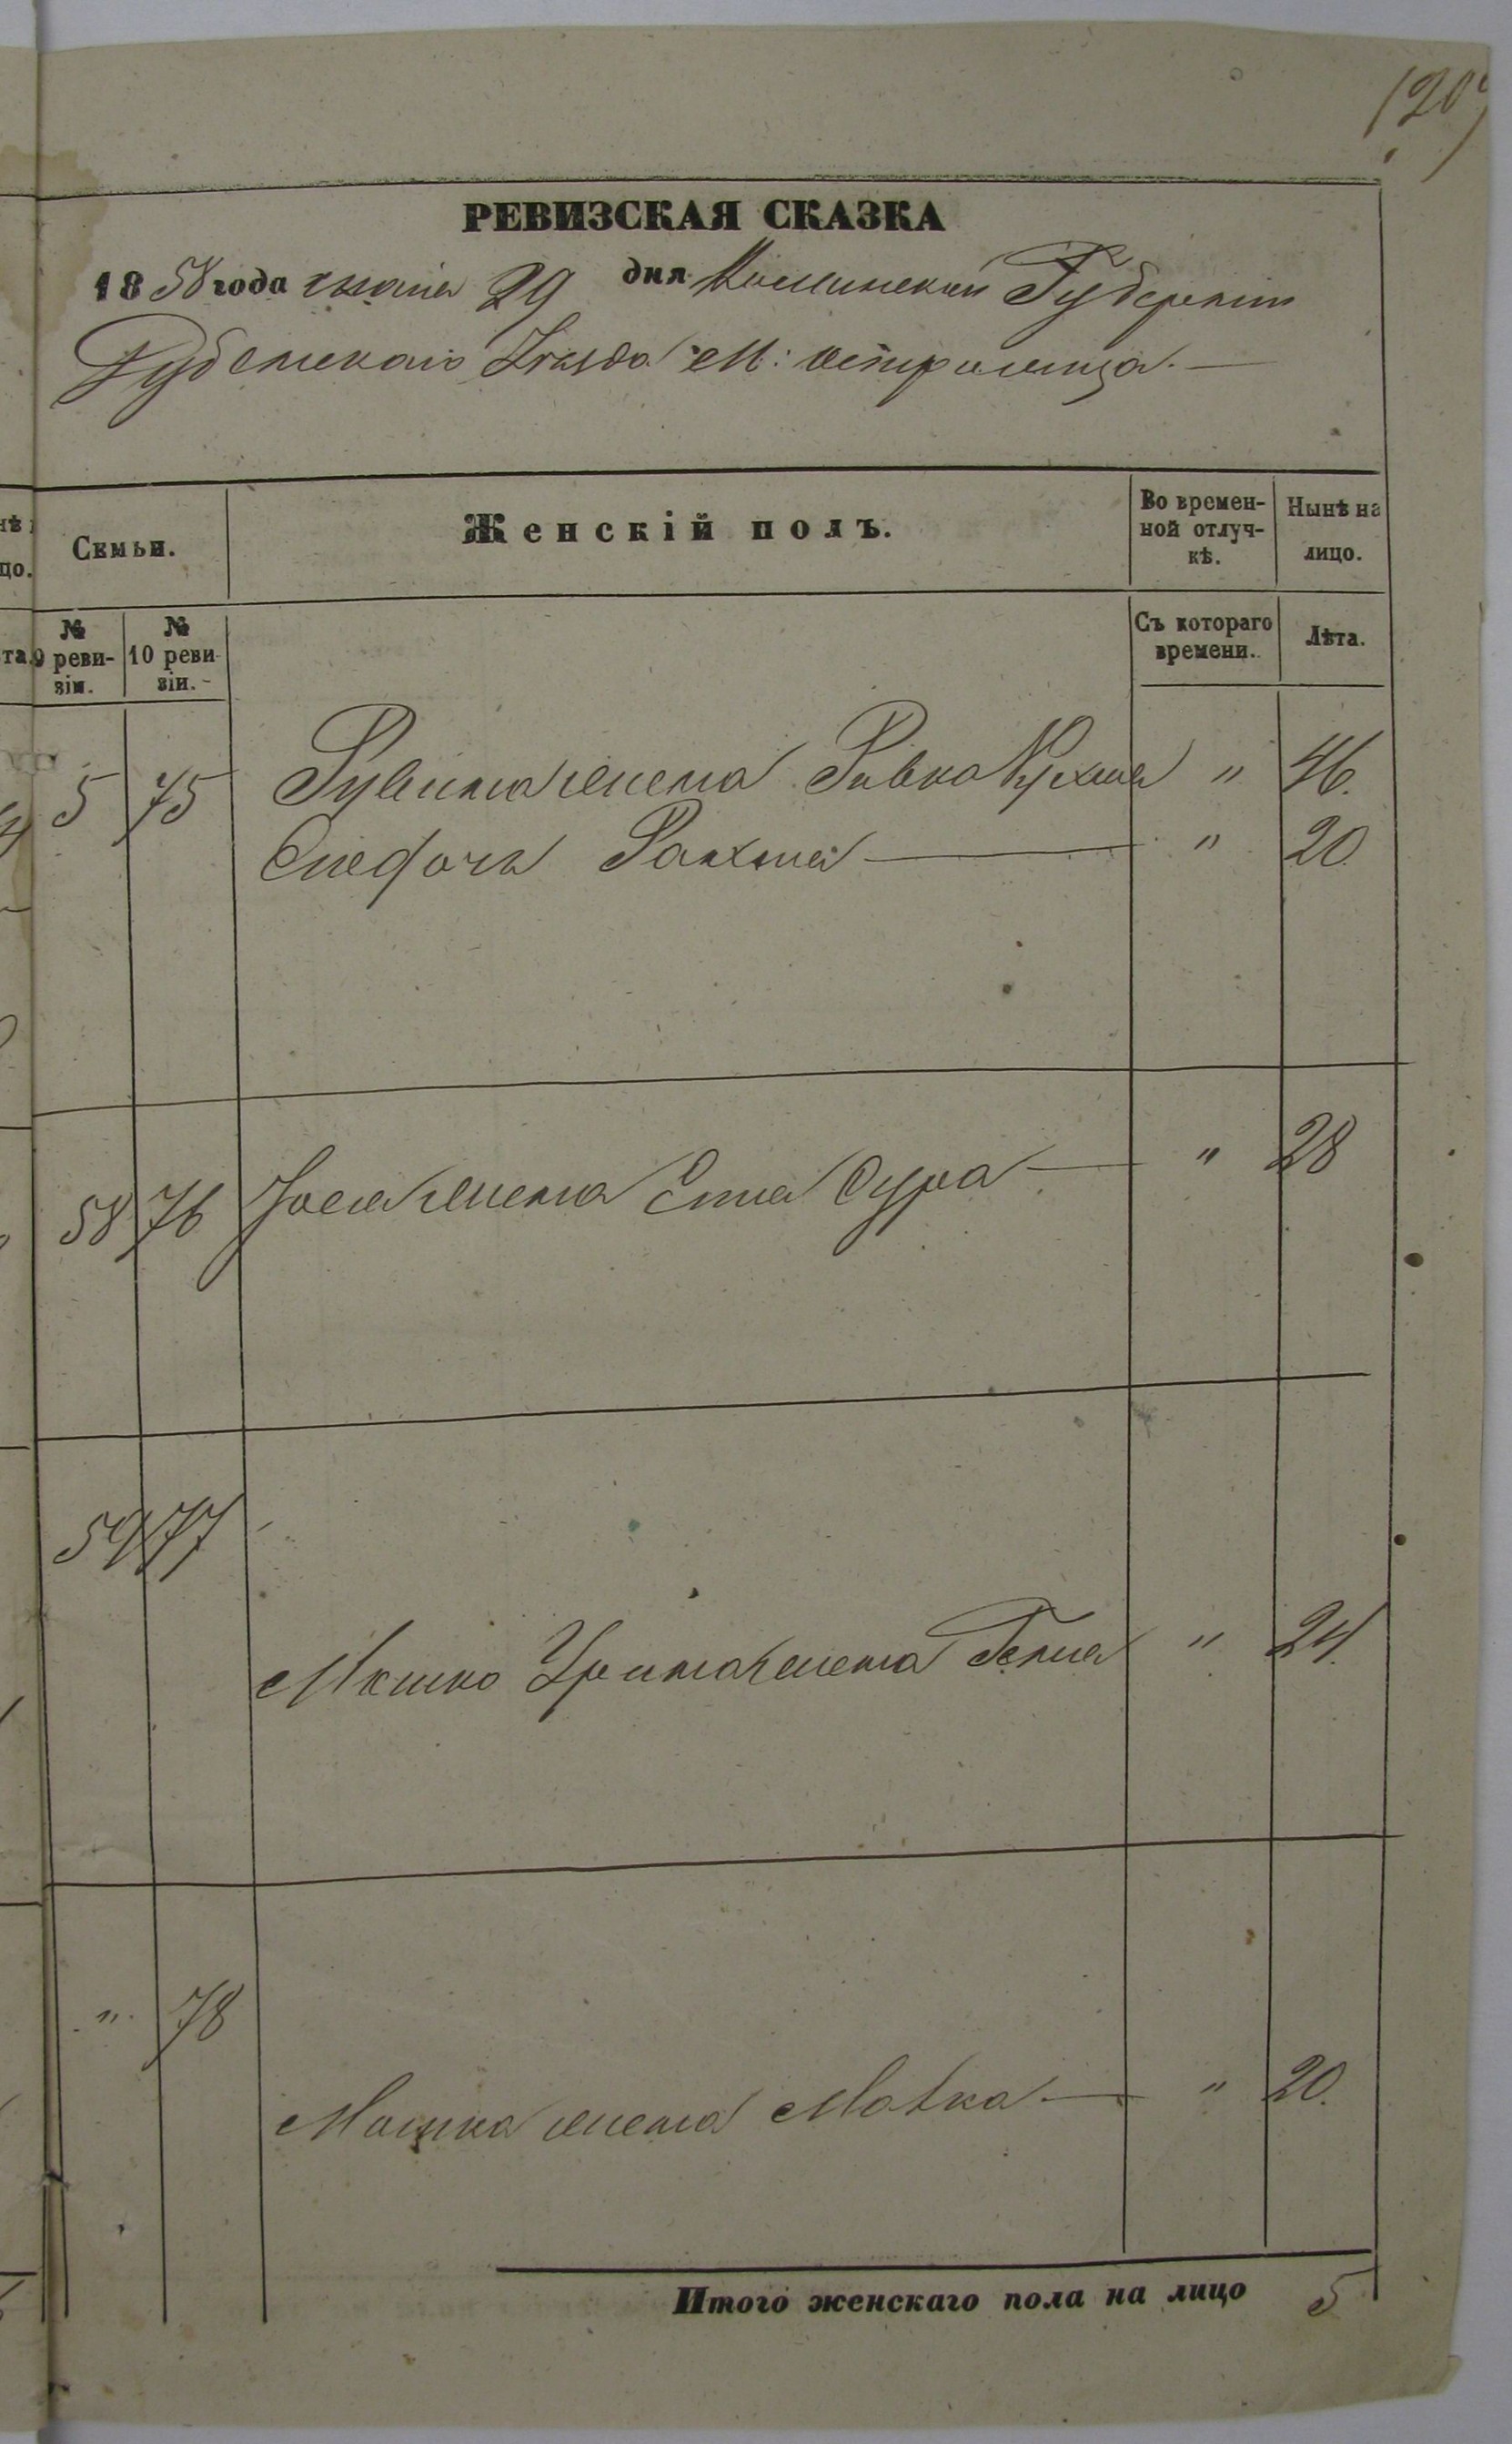 РЕВИЗСКАЯ СКАЗКА
1858 года 29 дня Волынской Губерніи
Дубенскаго Уѣзда М:
Семьи.
Женскій полъ.
Во времен-
ной отлуч-
кѣ.
Нынѣ на
лицо.
№
9 реви-
зіи.
№
10 реви-
зіи.
Съ котораго
времени.
Лѣта.
5 75 Рувина жена Ривка Рухля " 46.
Ихъ дочь Рахля " 20.
58 76 Іося жена Ента Сура " 28
59 77
Мошко жена Геня " 24.
" 78
Мошка жена Малка " 20.
Итого женскаго пола на лицо 5